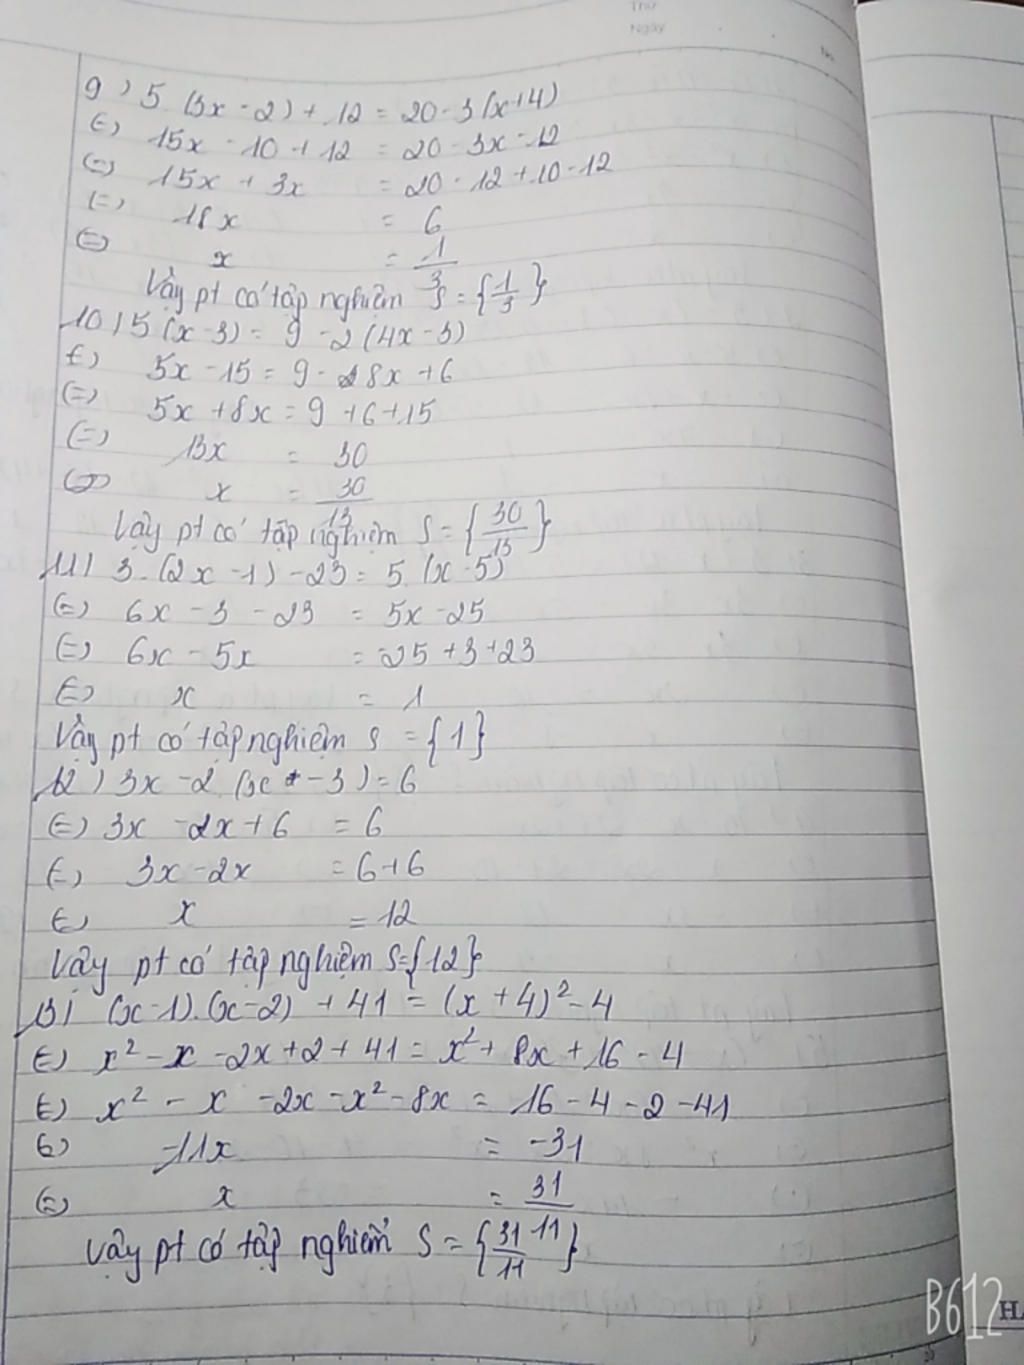 Thứ
Ngày
No.
9) 5 (3x - 2) + 12 = 20 - 3(x+4)
(=) 15x - 10 + 12 = 20 - 3x - 12
(=) 15x + 3x = 20 - 12 + 10 - 12
(=) 18x = 6
(=) x = 1/3
Vậy pt có tập nghiệm S = {1/3}
10) 5 (x - 3) = 9 - 2 (4x - 3)
(=) 5x - 15 = 9 - 8x + 6
(=) 5x + 8x = 9 + 6 + 15
(=) 13x = 30
(=) x = 30/13
Vậy pt có tập nghiệm S = {30/13}
11) 3. (2x - 1) - 23 = 5. (x - 5)
(=) 6x - 3 - 23 = 5x - 25
(=) 6x - 5x = -25 + 3 + 23
(=) x = 1
Vậy pt có tập nghiệm S = {1}
12) 3x - 2. (x - 3) = 6
(=) 3x - 2x + 6 = 6
(=) 3x - 2x = 6 + 6
(=) x = 12
Vậy pt có tập nghiệm S = {12}
13) (x - 1). (x - 2) + 41 = (x + 4)² - 4
(=) x² - x - 2x + 2 + 41 = x² + 8x + 16 - 4
(=) x² - x - 2x - x² - 8x = 16 - 4 - 2 - 41
(=) -11x = -31
(=) x = 31/11
Vậy pt có tập nghiệm S = {31/11}
B612